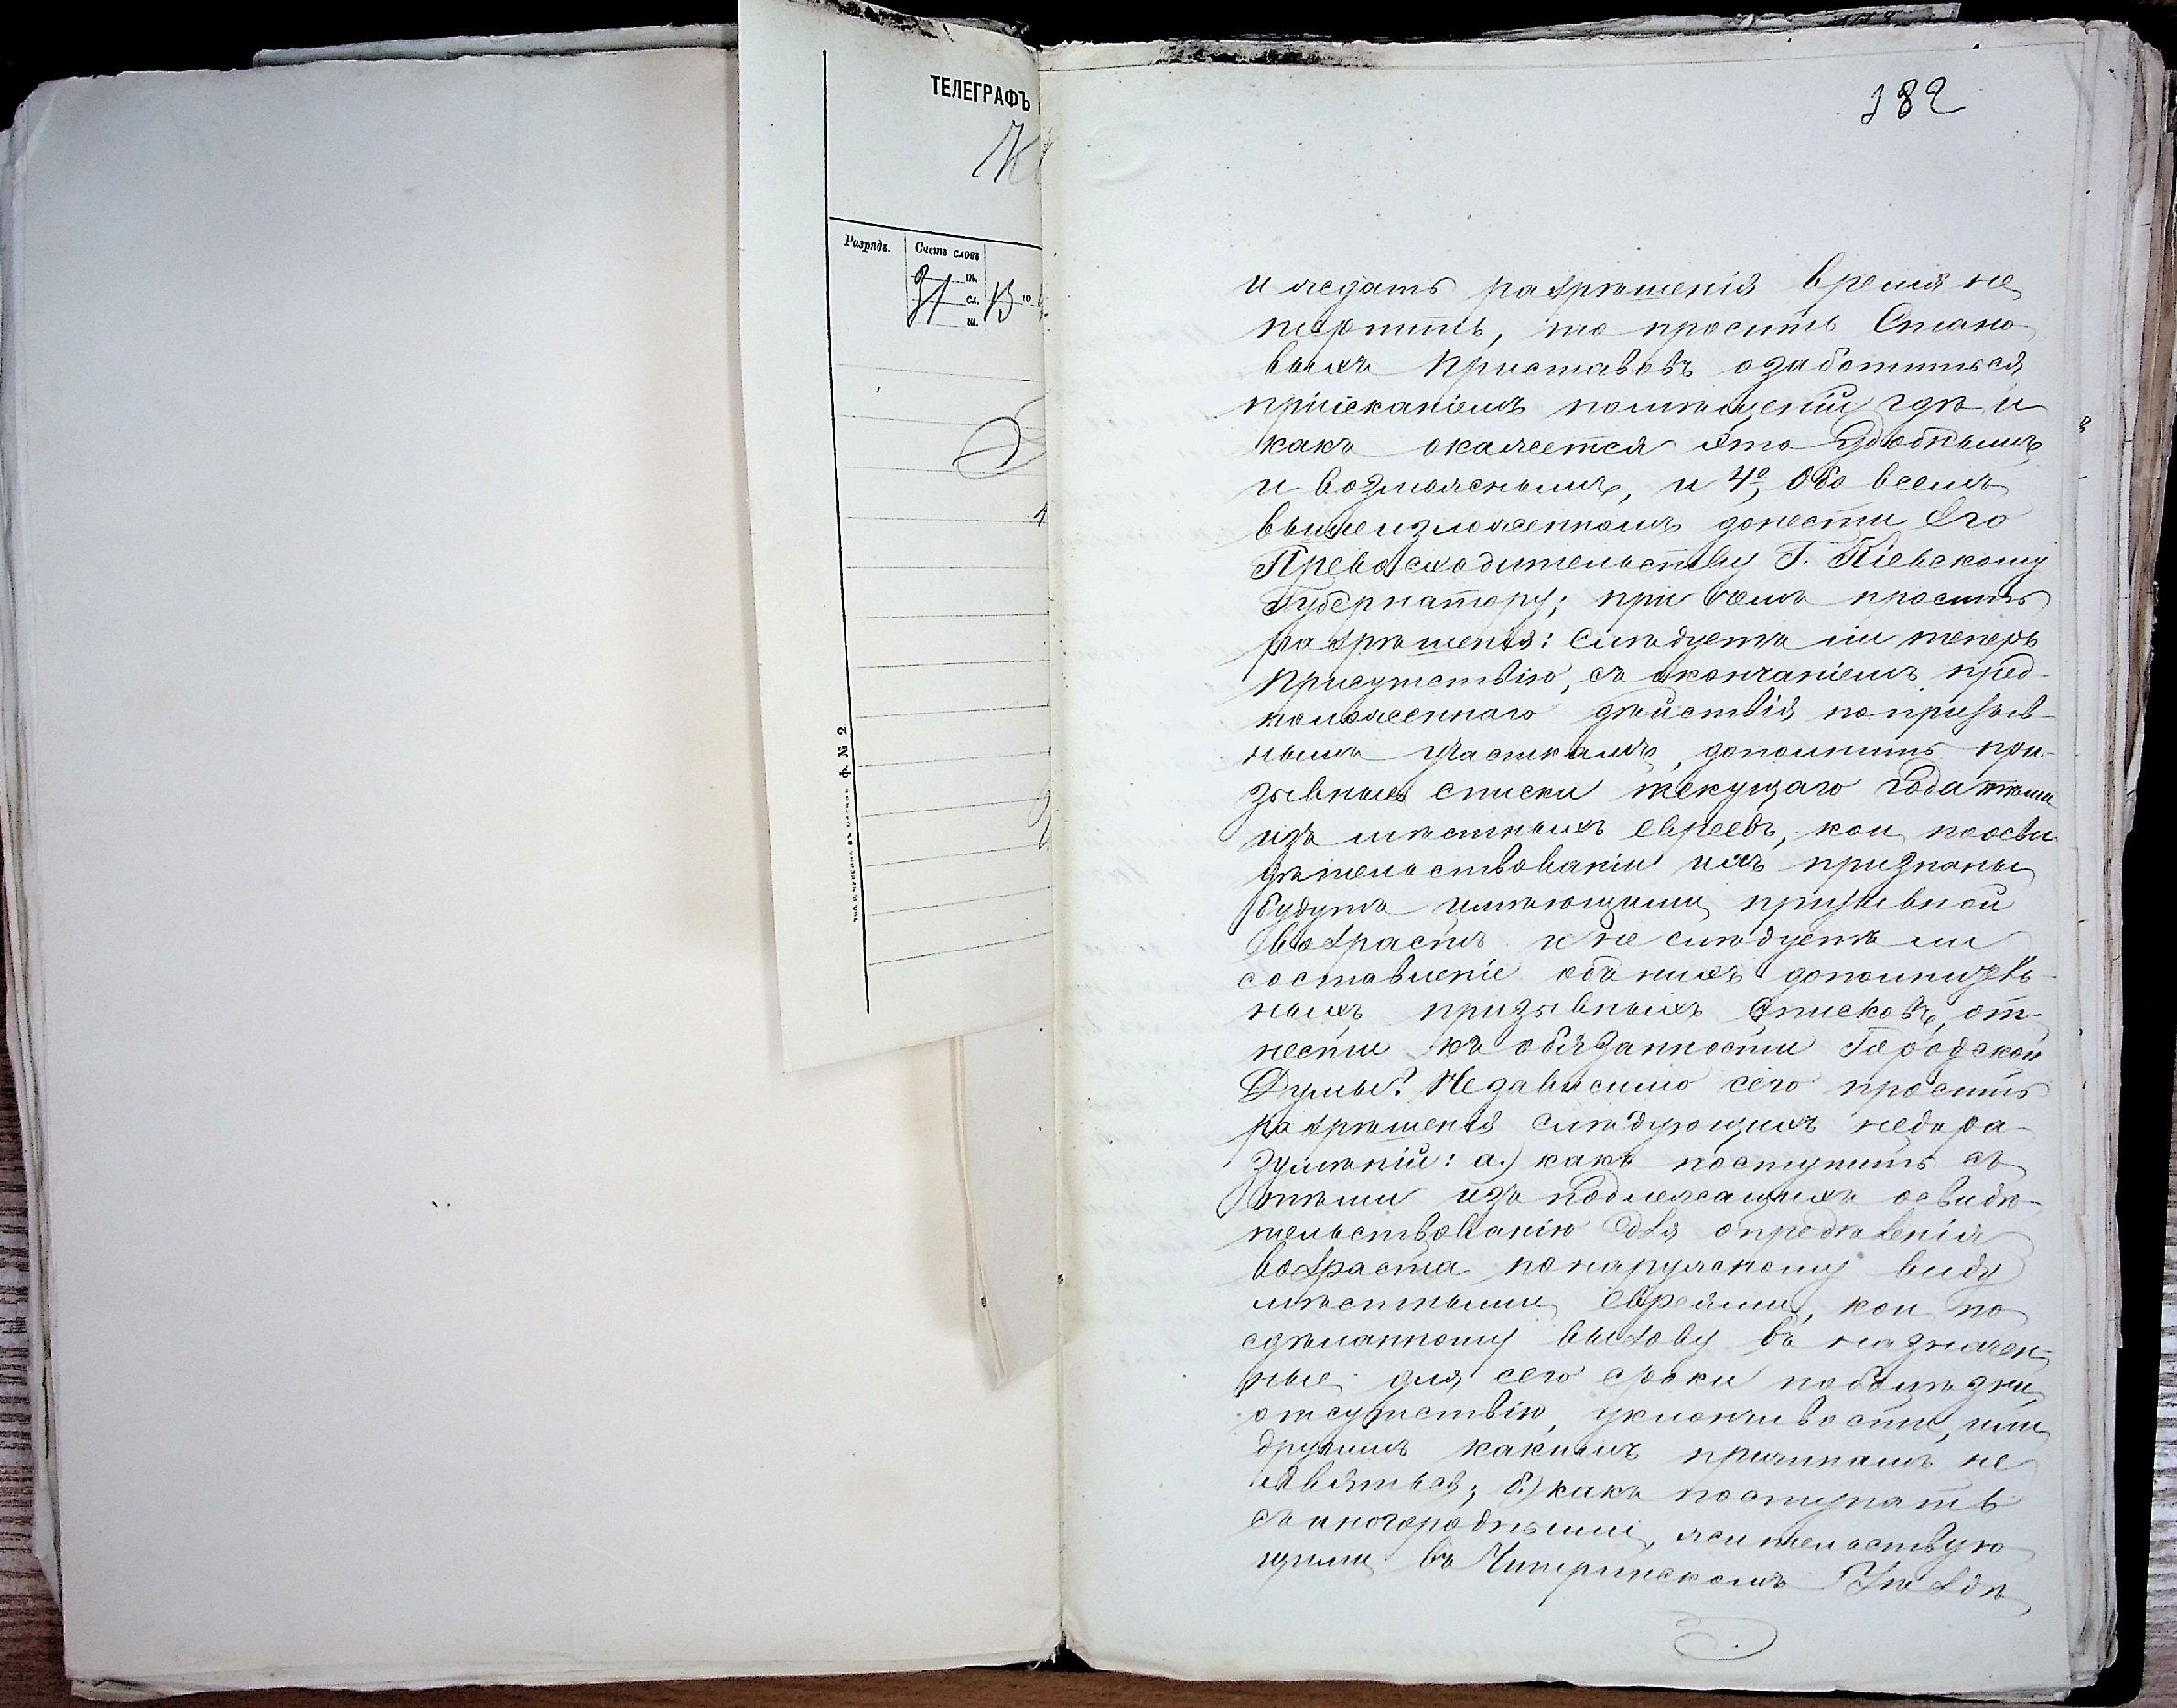 ТЕЛЕГРАФЪ
Разрядъ.
Счетъ словъ
31
сл.
13
Ф. № 2.
182
и ждать разрѣшенія время не
терпитъ, то просить Стано-
выхъ Приставовъ озаботиться
пріисканіемъ помѣщеній гдѣ и
какъ окажется это удобнымъ
и возможнымъ, и 4е, Обо всемъ
вышеизложенномъ донести Его
Превосходительству Г. Кіевскому
Губернатору; при чемъ просить
разрѣшенія: слѣдуетъ ли теперь
Присутствію, съ окончаніемъ пред-
положеннаго дѣйствія по призыв-
нымъ участкамъ, дополнить при-
зывные списки текущаго года тѣми
изъ мѣстныхъ евреевъ, кои по осви-
дѣтельствованіи ихъ признаны
будутъ имѣющими призывной
возрастъ и не слѣдуетъ ли
составленіе объ нихъ дополнитель-
ныхъ призывныхъ списковъ, от-
нести къ обязанности Городской
Думы? Независимо сего просить
разрѣшенія слѣдующихъ недора-
зумѣній: а.) какъ поступить съ
тѣми изъ подлежащихъ освидѣ-
тельствованію для опредѣленія
возраста по наружному виду
мѣстными евреями, кои по
сдѣланному вызову въ назначен-
ные для сего сроки по болѣзни,
отсутствію, уклончивости, или
другимъ какимъ причинамъ не
явятся; б.) какъ поступать
съ иногородными, жительствую
щими въ Чигиринскомъ Уѣздѣ